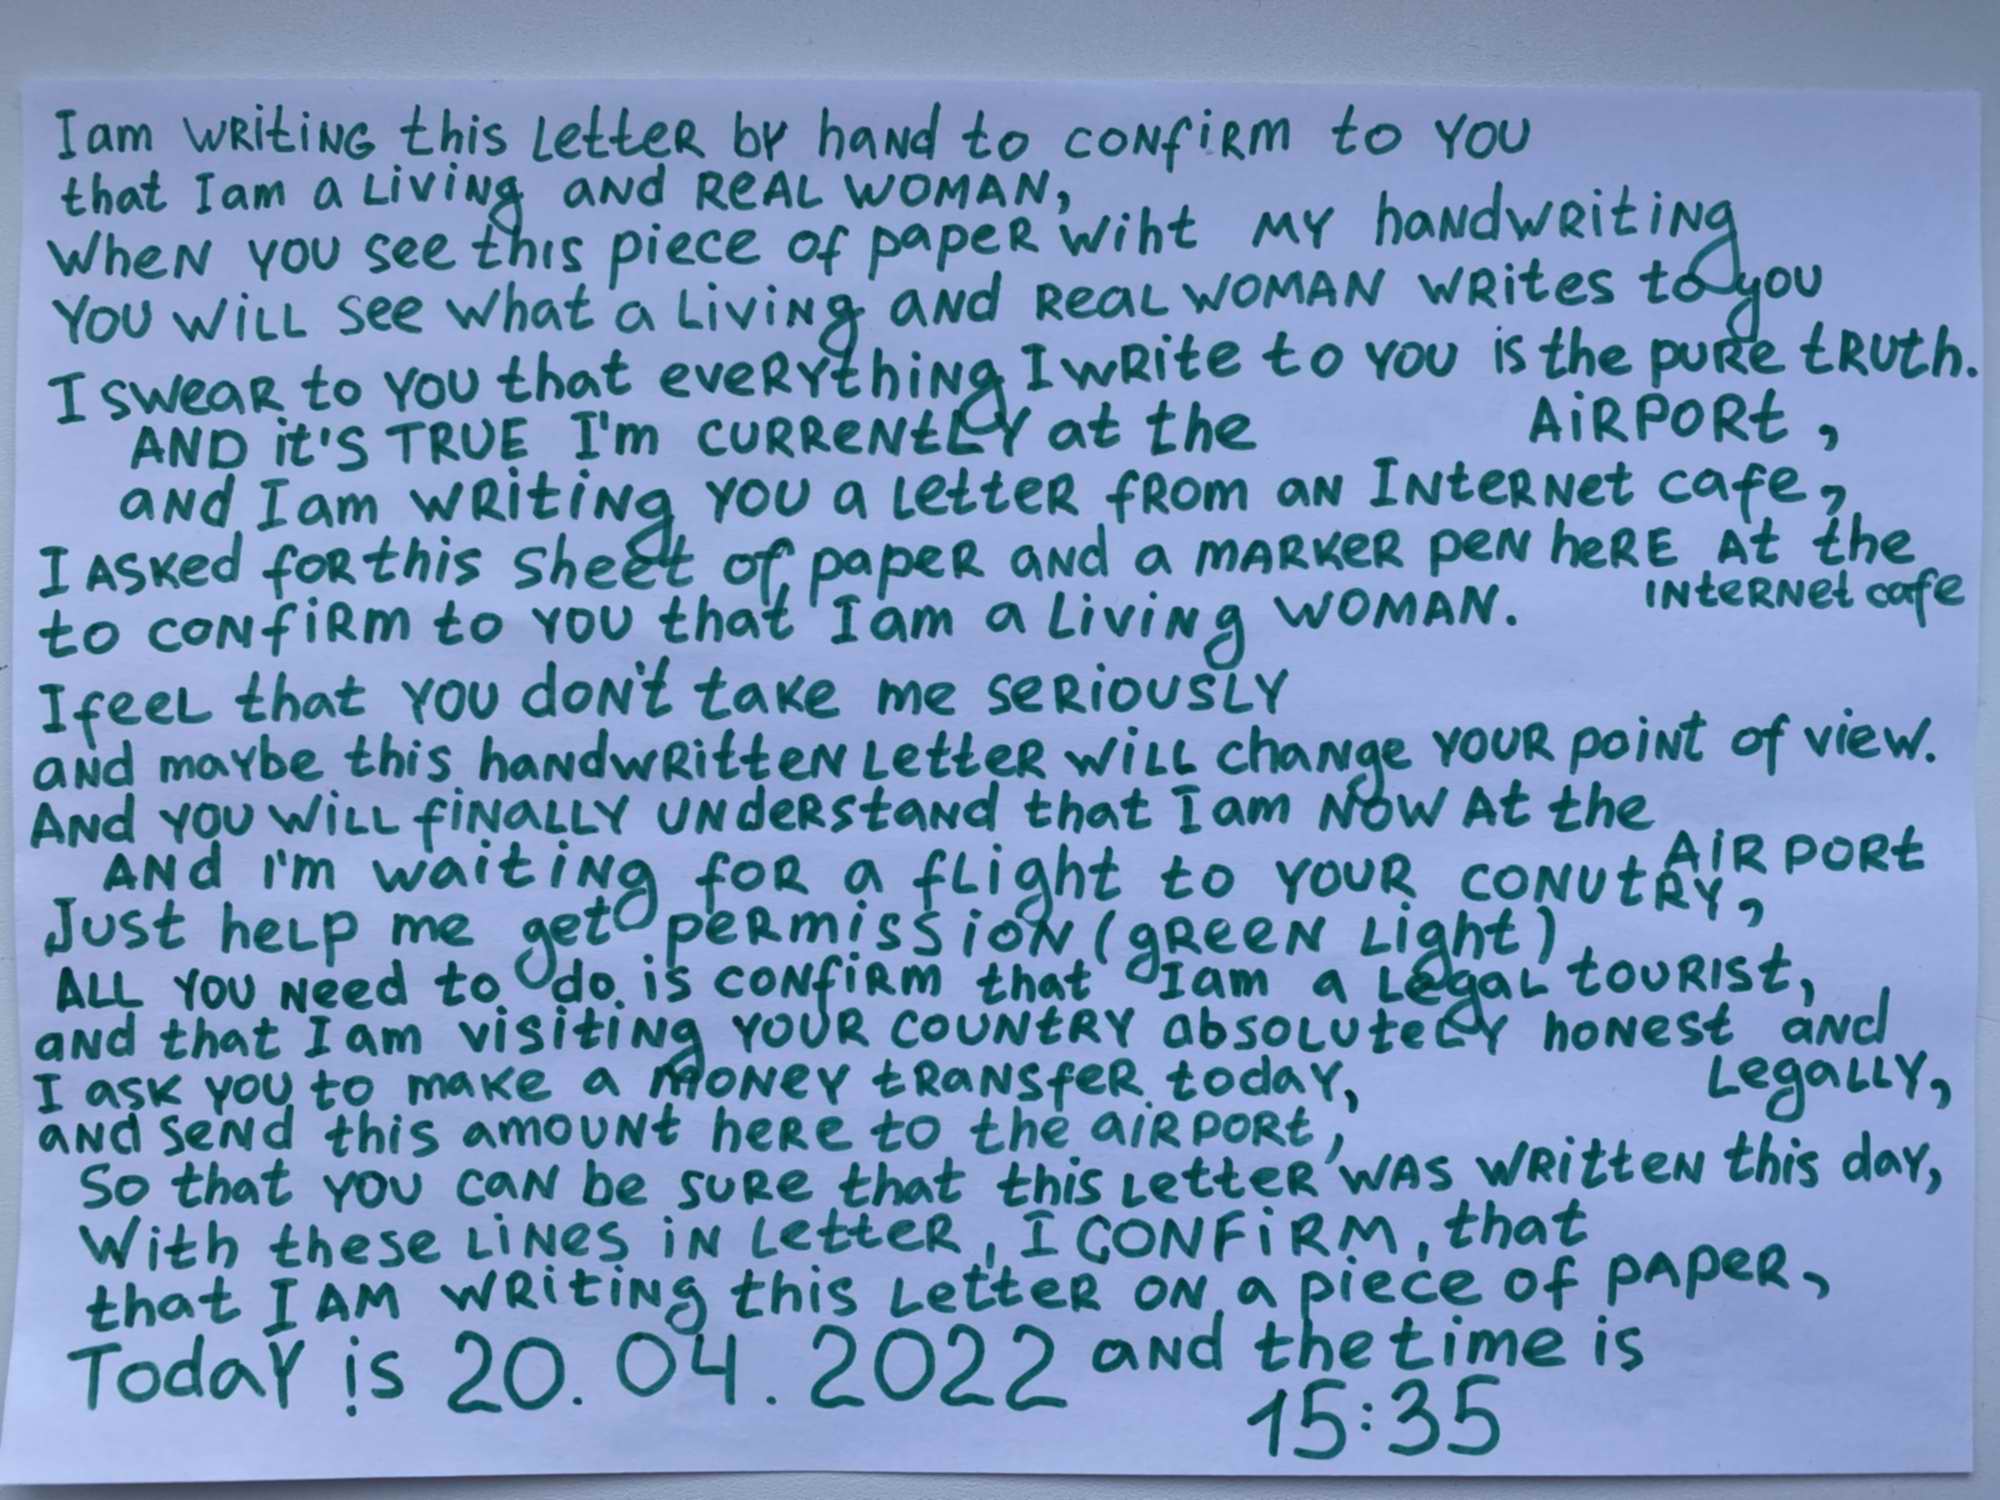 I am writing this letter by hand to confirm to you
that I am a living and real woman,
When you see this piece of paper wiht my handwriting
you will see what a living and real woman writes to you
I swear to you that everything I write to you is the pure truth.
AND it's TRUE I'm currently at the AIRPORT,
and I am writing you a letter from an Internet cafe,
I asked for this sheet of paper and a marker pen here at the
internet cafe
to confirm to you that I am a living woman.
I feel that you don't take me seriously
and maybe this handwritten letter will change your point of view.
And you will finally understand that I am now at the
AIRPORT
AND I'm waiting for a flight to your conutry,
Just help me get permission (green light)
ALL you need to do is confirm that I am a legal tourist,
and that I am visiting your country absolutely honest and
legally,
I ask you to make a money transfer today,
and send this amount here to the airport,
So that you can be sure that this letter was written this day,
With these lines in letter, I CONFIRM, that
that I AM writing this letter on a piece of paper,
Today is 20.04.2022 and the time is
15:35